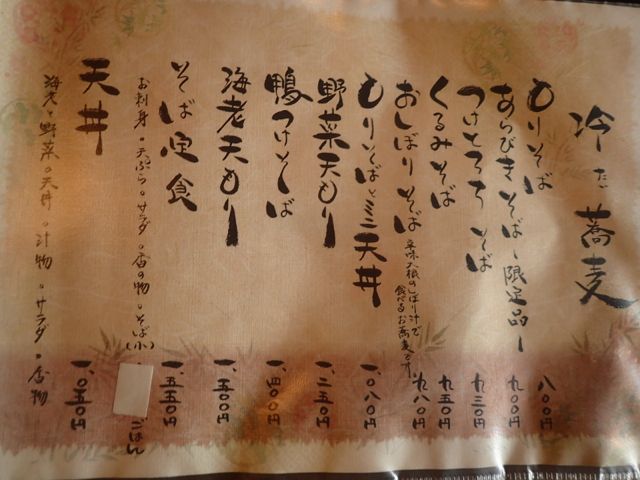 冷たい蕎麦
もりそば 八〇〇円
あらびきそば(限定品) 九〇〇円
つけとろろそば 九三〇円
くるみそば 九五〇円
おしぼりそば 辛味大根のしぼり汁で食べるお蕎麦です 九八〇円
もりそばとミニ天丼 一、〇八〇円
野菜天もり 一、二五〇円
鴨つけそば 一、四〇〇円
海老天もり 一、五〇〇円
そば定食 一、五五〇円
お刺身・天ぷら・サラダ・香の物・そば(小)・ごはん
天丼 一、〇五〇円
海老と野菜の天丼・汁物・サラダ・香物